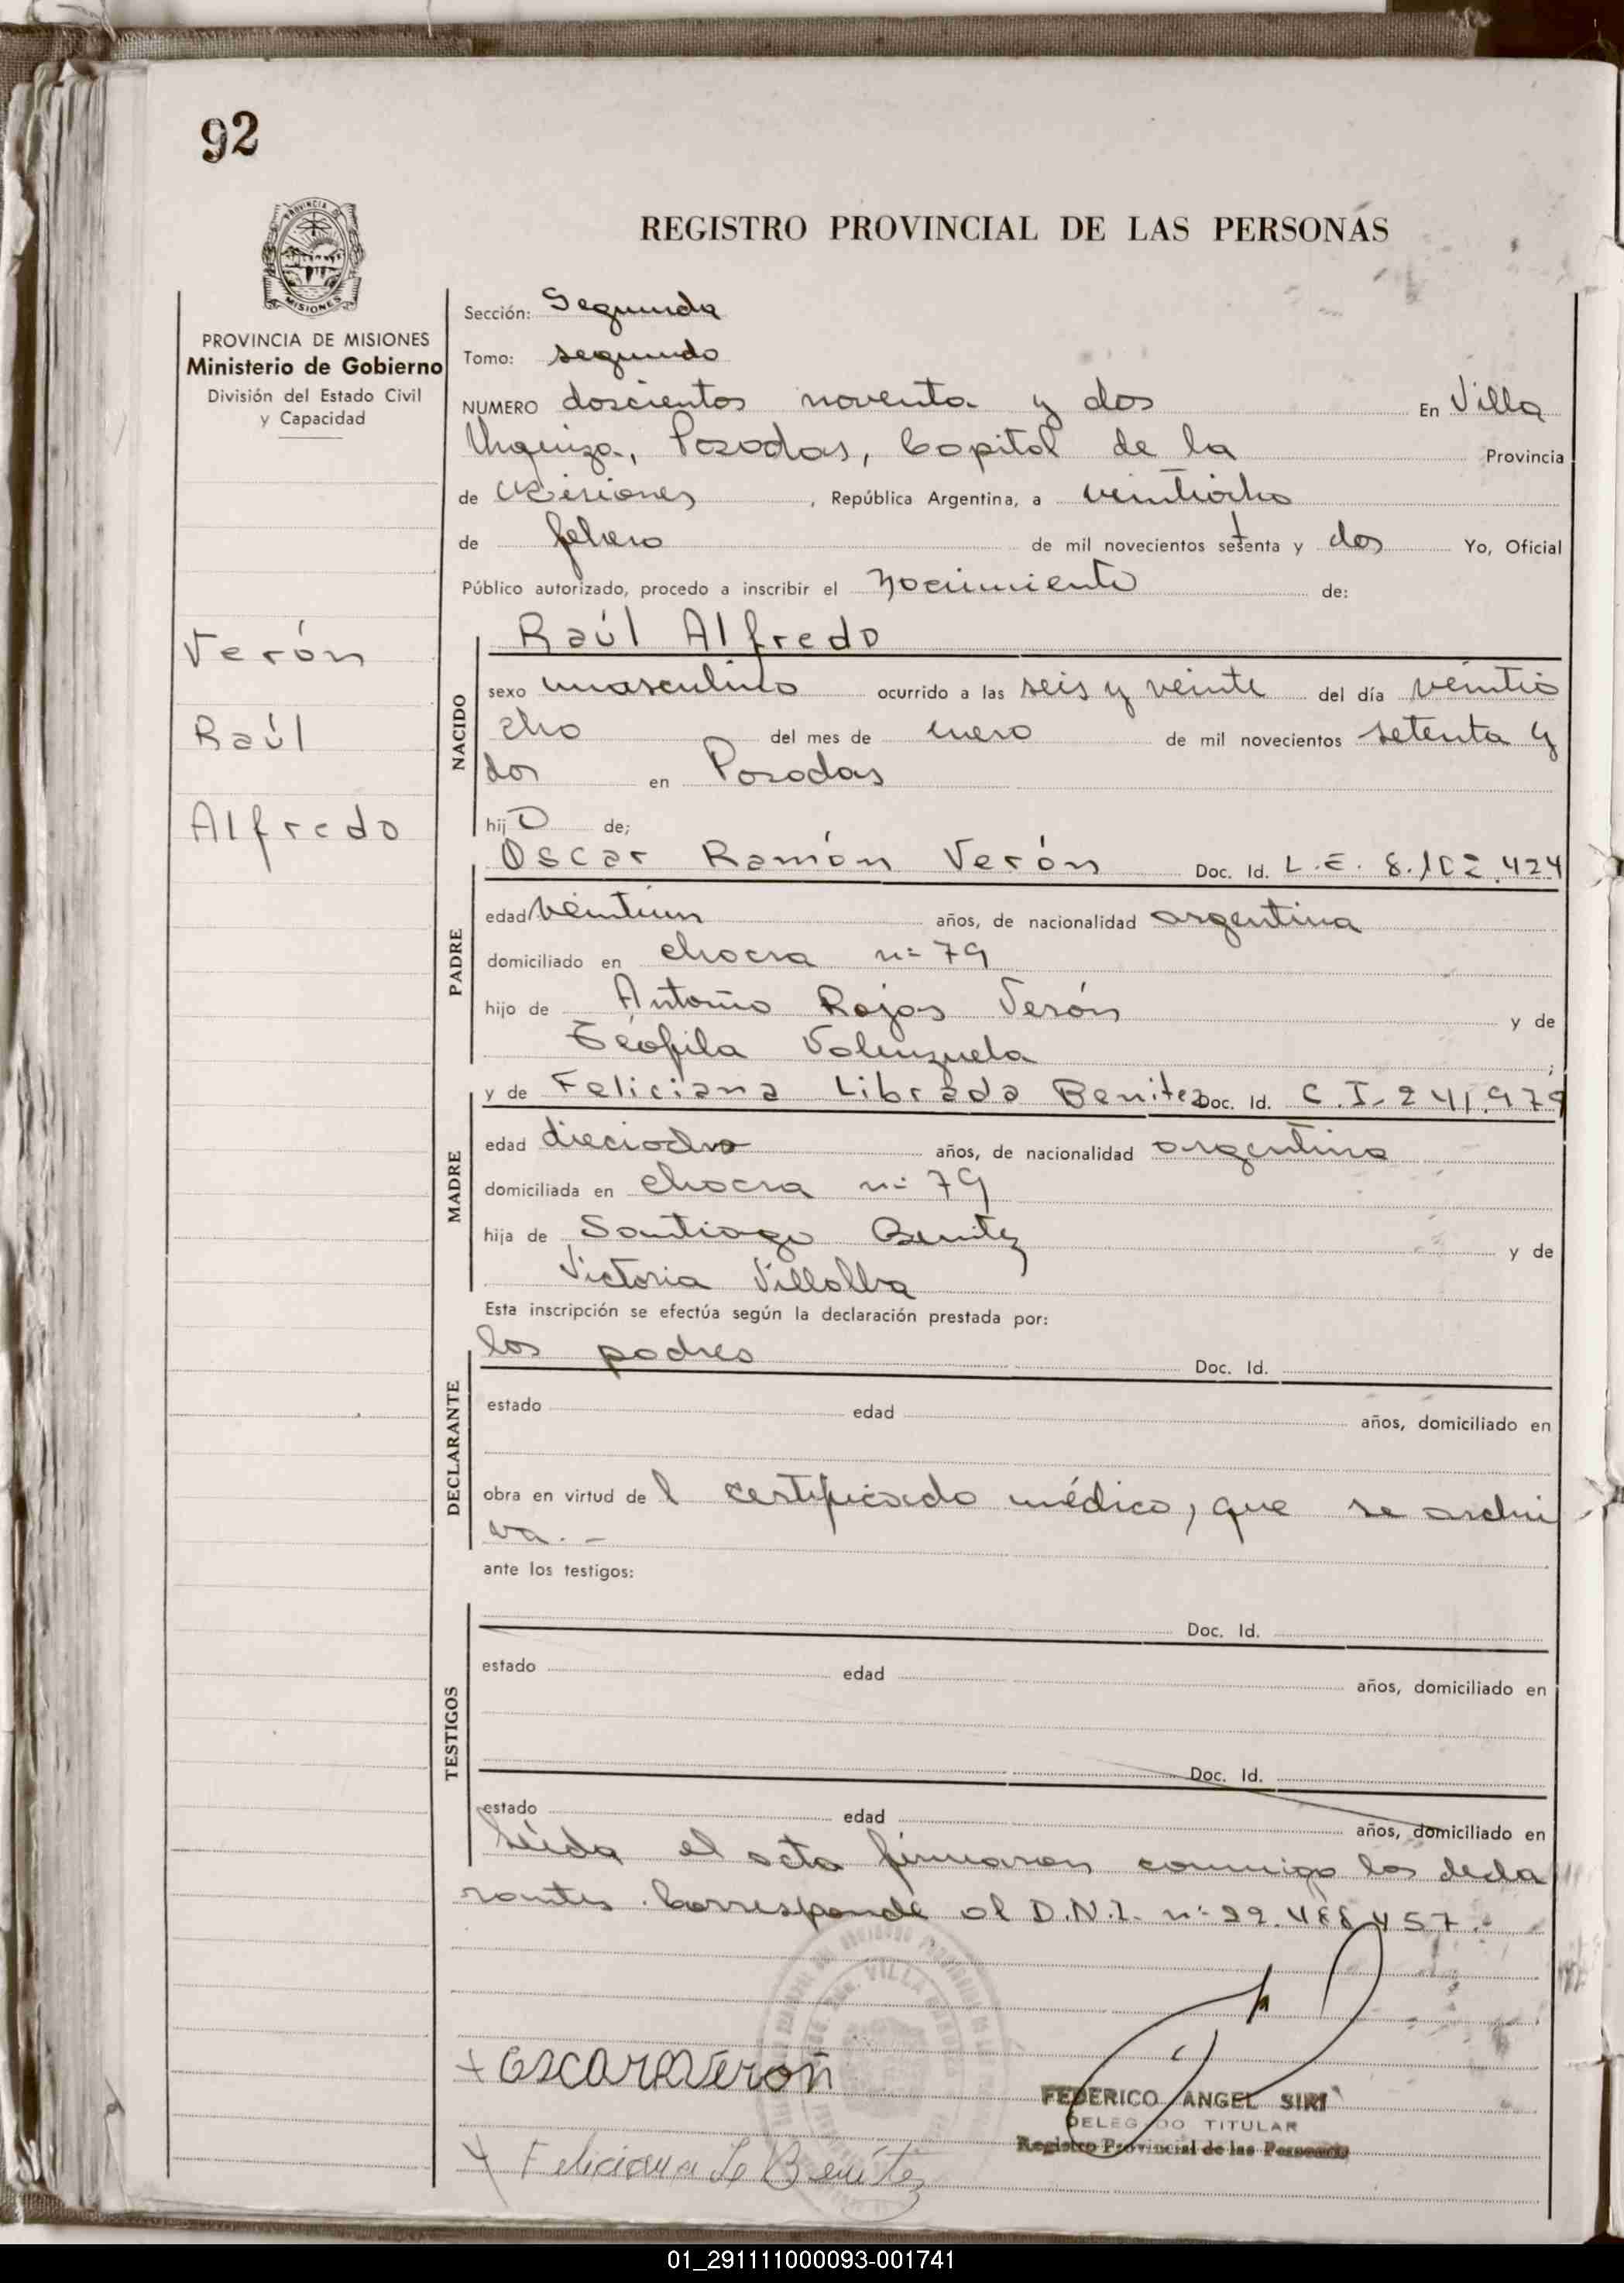 92
REGISTRO PROVINCIAL DE LAS PERSONAS
PROVINCIA DE
MISIONES
PROVINCIA DE MISIONES
Ministerio de Gobierno
División del Estado Civil
y Capacidad
Verón
Raúl
Alfredo
Sección: Segunda
Tomo: segundo
NUMERO doscientos noventa y dos En Villa
Urquiza, Posadas, Capital de la Provincia
de Misiones, República Argentina, a veintiocho
de febrero de mil novecientos setenta y dos Yo, Oficial
Público autorizado, procedo a inscribir el nacimiento de:
NACIDO
Raúl Alfredo
sexo masculino ocurrido a las seis y veinte del día veintio
cho del mes de enero de mil novecientos setenta y
dos en Posadas
hijo de;
PADRE
Oscar Ramón Verón Doc. Id. L.E. 8.102.424
edad veintiun años, de nacionalidad argentina
domiciliado en chacra nº 79
hijo de Antonio Rojas Verón y de
Teófila Valenzuela ;
MADRE
y de Feliciana Librada Benitez Doc. Id. C.I. 241.979
edad dieciocho años, de nacionalidad argentina
domiciliada en chacra nº 79
hija de Santiago Benitez y de
Victoria Villalba
Esta inscripción se efectúa según la declaración prestada por:
DECLARANTE
los padres Doc. Id.
estado edad años, domiciliado en
obra en virtud del certificado médico, que se archi
va. -
ante los testigos:
TESTIGOS
Doc. Id.
estado edad años, domiciliado en
Doc. Id.
estado edad años, domiciliado en
Leída el acta firmaron conmigo los decla
rantes. Corresponde al D.N.I. nº
+ Oscar R Verón
FEDERICO ANGEL SIRI
DELEGADO TITULAR
Registro Provincial de las Personas
+ Feliciana L Benítez
01_291111000093-001741